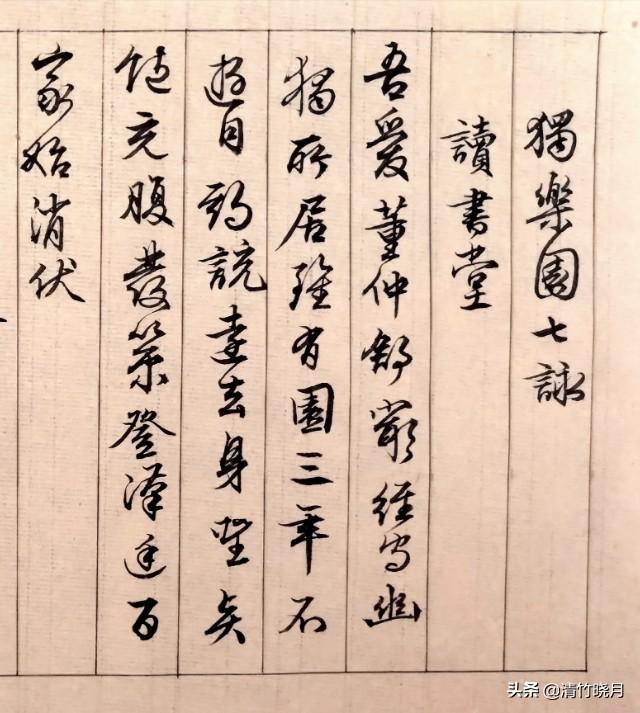 獨樂園七詠
讀書堂
吾愛董仲舒窮經守幽
獨所居雖有園三年不
遊目邪說遠去身聖言
飽充腹發策登漢庭百
家始消伏
头条 @清竹晓月